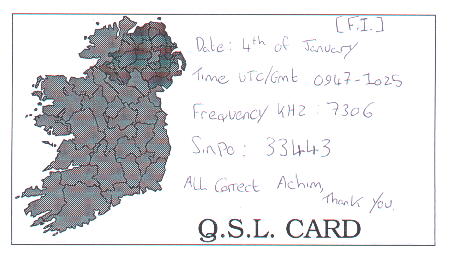 [F.I.]
Date: 4th of January
Time UTC/Gmt 0947-1025
Frequency KHZ: 7306
Sinpo: 33443
All Correct Achim,
Thank You.
Q.S.L. CARD